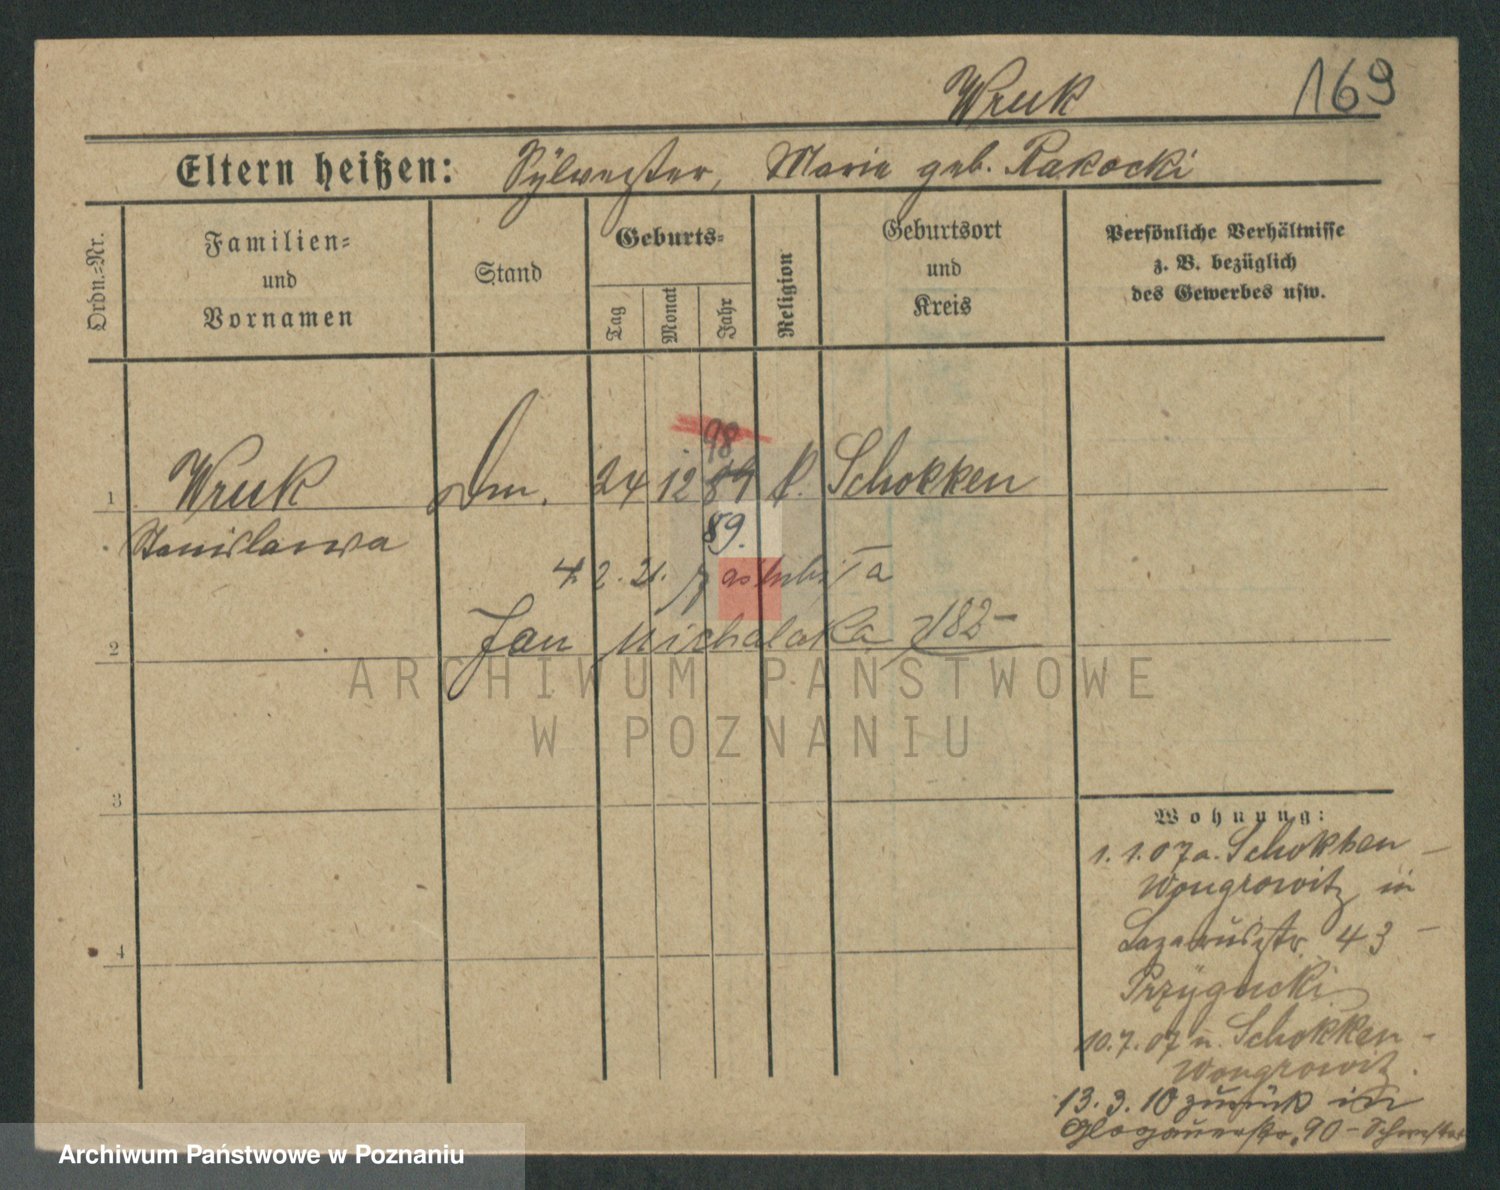 Wruk 169
Eltern heißen: Sylvester, Marie geb. Rakocki
Ordn.-Nr.
Familien- und Vornamen
Stand
Geburts-
Tag
Monat
Jahr
Religion
Geburtsort und Kreis
Persönliche Verhältnisse
z. B. bezüglich
des Gewerbes usw.
98
1 Wruk Dm. 24 12 89 k. Schokken
Stanislawa
89.
4. 2. 21. zaślubiła
2 Jan Michalaka 182-
3
4
Wohnung:
1. 1. 07 a. Schokken -
Wongrowitz in
Lazarusstr. 43 -
Przygucki
10. 7. 07 n. Schokken -
Wongrowitz.
13. 3. 10 zurück in
Glogauerstr. 90 - Schwester
ARCHIWUM PAŃSTWOWE
W POZNANIU
Archiwum Państwowe w Poznaniu